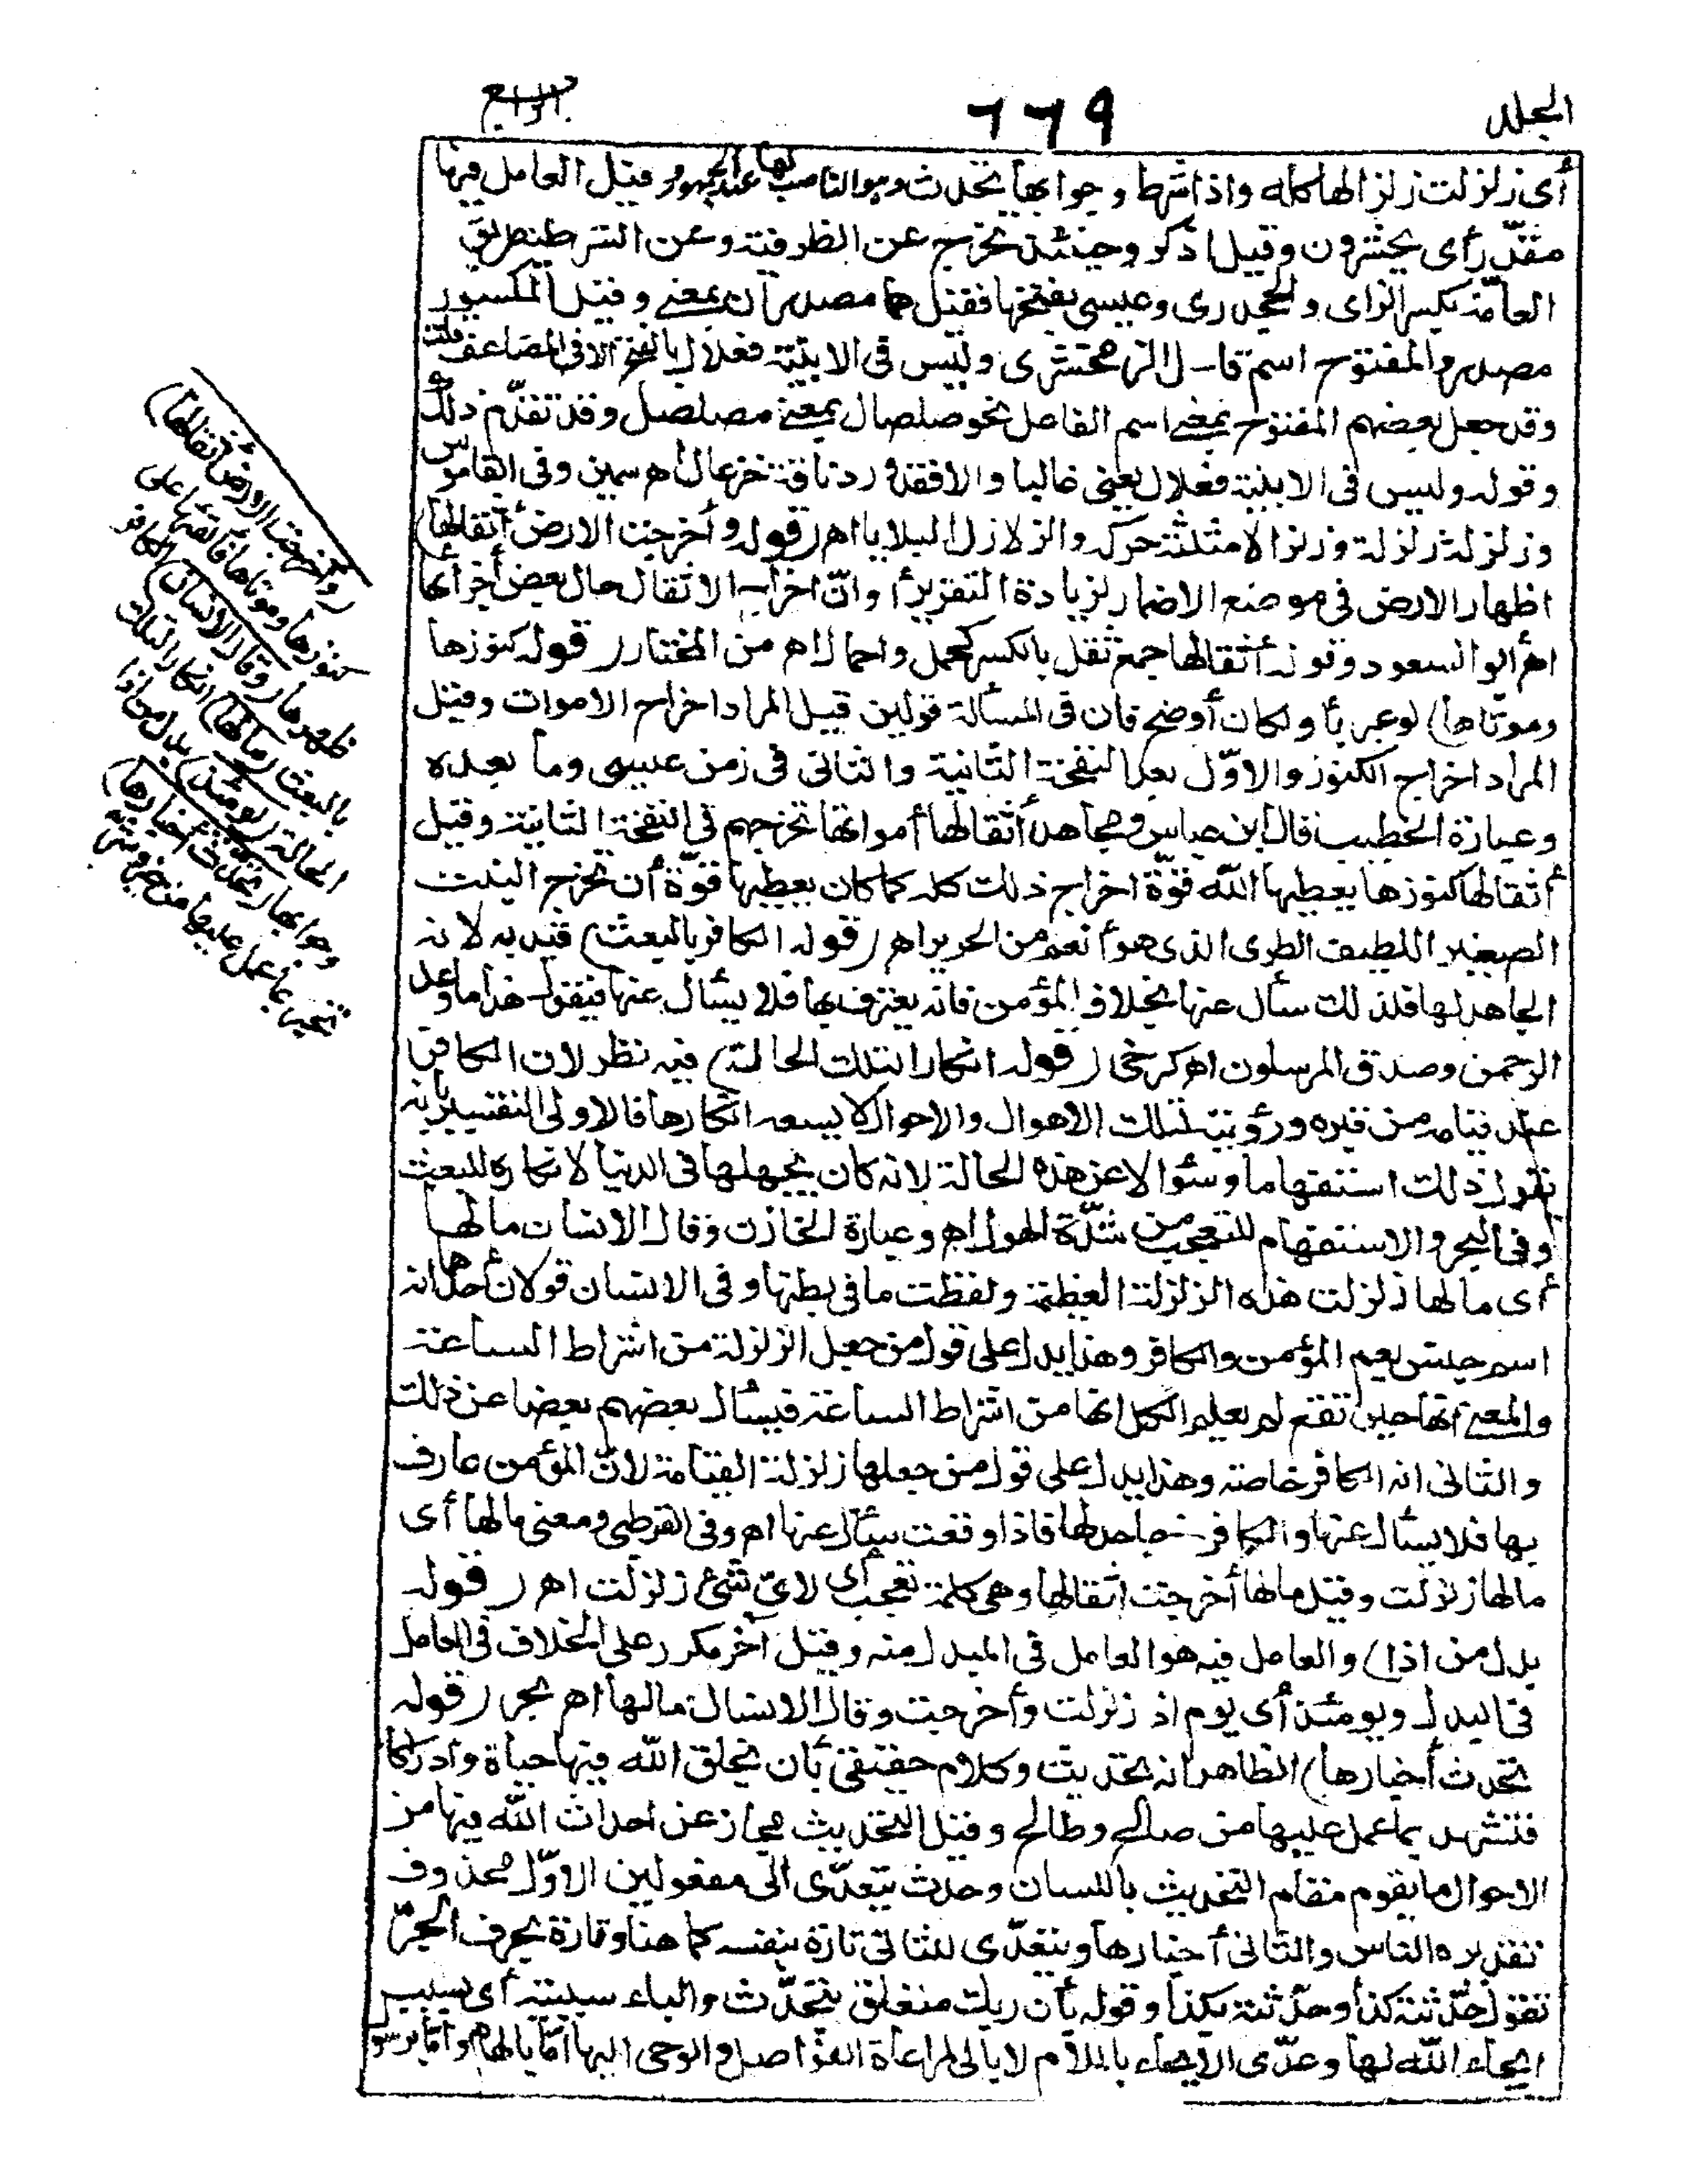 المجلد
٦٦٩
الرابع
أى زلزلت زلزالها كله واذا شرط وجوابها تحدث وهو الناصب لها عند الجمهور وقيل العامل فيها
مقدّر أى يحشرون وقيل اذكر وحينئذ تخرج عن الظرفية وعن الشرطية طريق
العامّة بكسر الزاى والجحدرى وعيسى بفتحها فقيل هما مصدران بمعنى وقيل المكسور
مصدر والمفتوح اسم قال الزمخشرى وليس فى الابنية فعلال بالفتح الا فى المضاعف قلت
وقد جعل بعضهم المفتوح بمعنى اسم الفاعل نحو صلصال بمعنى مصلصل وقد تقدّم ذلك
وقوله وليس فى الابنية فعلال يعنى غالبا والا فقد ورد ناقة خزعال اهـ سمين وفى القاموس
وزلزلة زلزلة وزلزالا مثلثة حركه والزلازل البلايا اهـ (قوله وأخرجت الارض أثقالها)
اظهار الارض فى موضع الاضمار لزيادة التقرير أو انّ اخراج الاثقال حال بعض أجزائها
اهـ أبو السعود وقوله أثقالها جمع ثقل بالكسر كحمل واحمال اهـ من المختار (قوله كنوزها
وموتاها) لو عبر بأو لكان أوضح فان فى المسألة قولين قيل المراد اخراج الاموات وقيل
المراد اخراج الكنوز والاوّل بعد النفخة الثانية والثانى فى زمن عيسى وما بعده
وعبارة الخطيب قال ابن عباس ومجاهد أثقالها أمواتها تخرجهم فى النفخة الثانية وقيل
أثقالها كنوزها يعطيها الله قوّة اخراج ذلك كله كما كان يعطيها قوّة أن تخرج النبت
الصغير اللطيف الطرى الذى هو أنعم من الحرير اهـ (قوله الكافر بالبعث) قيد به لانه
الجاهل لها فلذلك سأل عنها بخلاف المؤمن فانه يعترف بها فلا يسأل عنها فيقول هذا ما وعد
الرحمن وصدق المرسلون اهـ كرخى (قوله انكارا لتلك الحالة) فيه نظر لان الكافر
عند قيامه من قبره ورؤيته لتلك الاهوال والاحوال لا يسعه انكارها فالاولى التفسير بانه
يقول ذلك استفهاما وسئوالا عن هذه الحالة لانه كان يجهلها فى الدنيا لانكاره للبعث
وفى البحر والاستفهام للتعجب من شدّة الهول اهـ وعبارة الخازن وقال الانسان ما لها
أى ما لها زلزلت هذه الزلزلة العظيمة ولفظت ما فى بطنها وفى الانسان قولان أحدها انه
اسم جنس يعم المؤمن والكافر وهذا يدل على قول من جعل الزلزلة من اشراط الساعة
والمعنى أنها حين تقع لم يعلم الكل انها من اشراط الساعة فيسأل بعضهم بعضا عن ذلك
والثانى انه الكافر خاصة وهذا يدل على قول من جعلها زلزلة القيامة لانّ المؤمن عارف
بها فلا يسأل عنها والكافر جاحد لها فاذا وقعت سأل عنها اهـ وفى القرطبى ومعنى ما لها أى
ما لها زلزلت وقيل ما لها أخرجت أثقالها وهى كلمة تعجب أى لاىّ شئ زلزلت اهـ (قوله
بدل من اذا) والعامل فيه هو العامل فى المبدل منه وقيل آخر مكرر على الخلاف فى العامل
فى البدل ويومئذ أى يوم اذ زلزلت وأخرجت وقال الانسان مالها اهـ بحر (قوله
تحدث أخبارها) الظاهر انه تحديث وكلام حقيقى بأن يخلق الله فيها حياة وادراكا
فتشهد بما عمل عليها من صالح وطالح وقيل التحديث مجاز عن احداث الله فيها من
الاحوال ما يقوم مقام التحديث باللسان وحدث يتعدّى الى مفعولين الاوّل محذوف
تقديره الناس والثانى أخبارها ويتعدّى للثانى تارة بنفسه كما هنا وتارة بحرف الجرّ
تقول حدّثته كذا وحدّثته بكذا وقوله بأن ربك متعلق بتحدّث والباء سببية أى بسبب
ايحاء الله لها وعدّى الايحاء باللام لا بالى لمراعاة الفواصل والوحى اليها امّا بالهام وامّا برسول
(وأخرجت الارض أثقالها)
كنوزها وموتاها فألقتها على
ظهرها (وقال الانسان) الكافر
بالبعث (مالها) انكارا لتلك
الحالة (يومئذ) بدل من اذا
وجوابها (تحدّث أخبارها)
تخبر بما عمل عليها من خير وشرّ